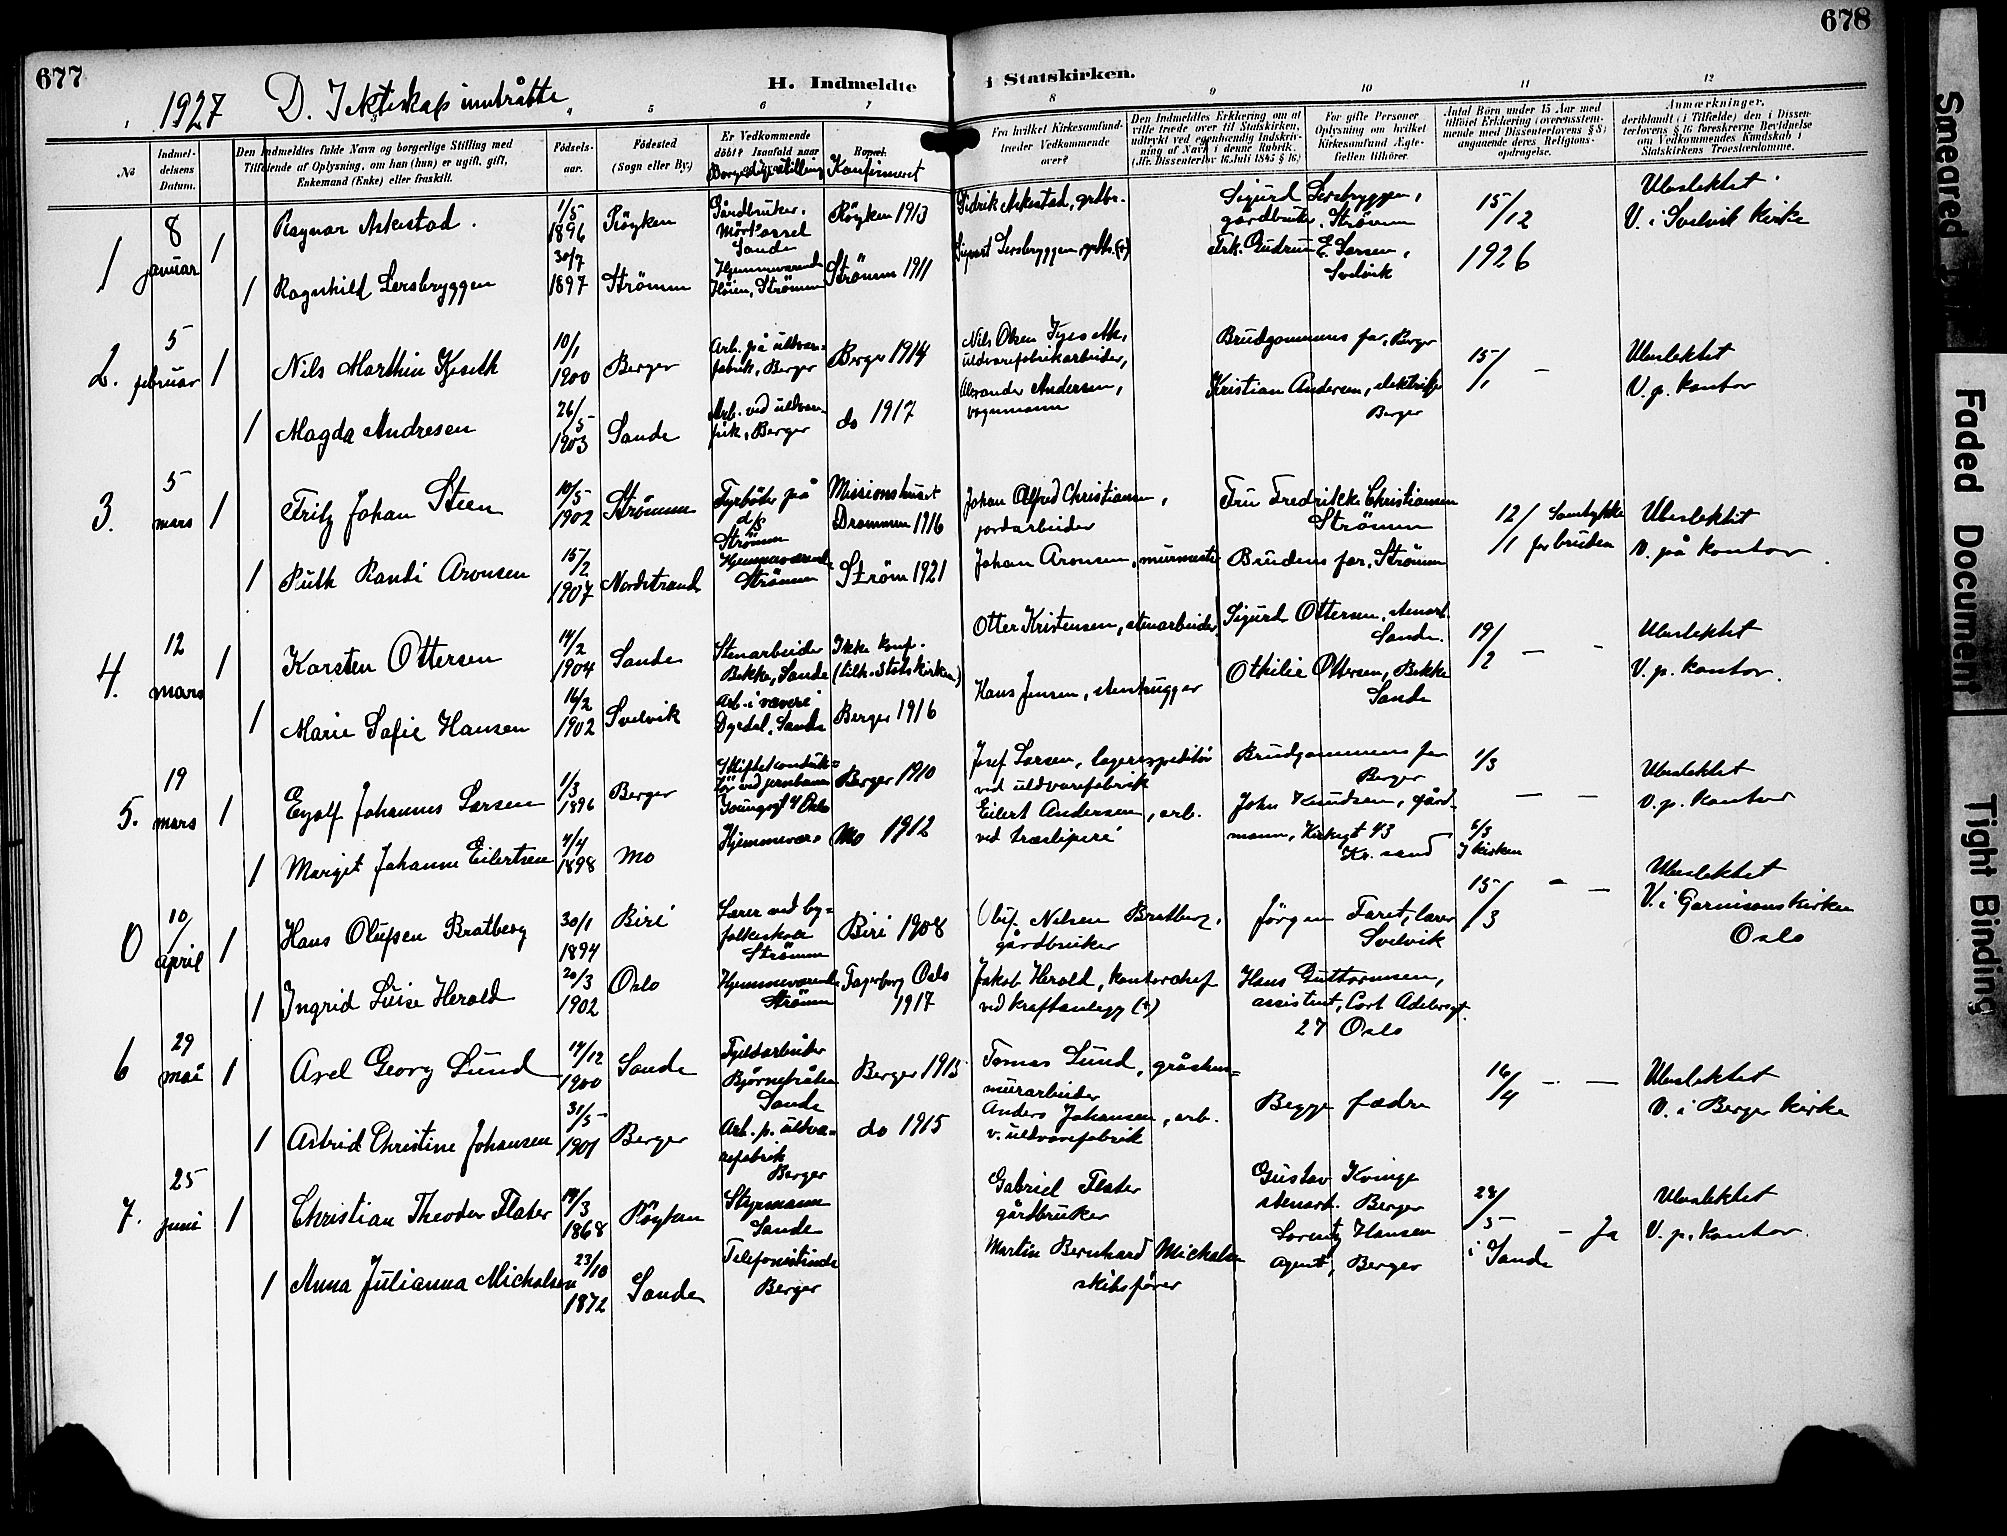 677
678
1927 D. Iekteskap inntrådte
H. Indmeldte i Statskirken.
5 6 7 8 9 10 11 12
No
Indmeldelsens Datum.
Den Indmeldtes fulde Navn og borgerlige Stilling med Tilføiende af Oplysning, om han (hun) er ugift, gift, Enkemand (Enke) eller fraskilt.
Fødselsaar.
Fødested (Sogn eller By.)
Er Vedkommende døbt? Isaafald naar
Borgerlig stilling
Konfirmert
Fra hvilket Kirkesamfund træder Vedkommende over?
Den Indmeldtes Erklæring om at ville træde over til Statskirken, udtrykt ved egenhændig Indskrivning af Navn i denne Rubrik. (Jfr. Dissenterlov 16 Juli 1845 § 16)
For gifte Personer Oplysning om hvilket Kirkesamfund Ægtefællen tilhører.
Antal Børn under 15 Aar med tilføiet Erklæring i overensstemmende med Dissenterlovens § 8 angaaende deres Religionsopdragelse.
Anmærkninger, deriblandt (i Tilfælde) den i Dissenterlovens § 16 foreskrevne Bevidnelse om Vedkommendes Kundskab i Statskirkens Troeslærdomme.
1 8 januar 1 Ragnar Askestad. 1/5 1896 Röyken Gårdbruker. Sande Röyken 1913 Didrik Askestad, grdbr. Sigurd Lersbryggen, gårdbruker, Strömm 15/12 Ubeslektet
V. i Svelvik Kirke
1 Ragnhild Lersbryggen 30/7 1897 Strömm Hjemmeværende Höien, Strömm Strömm 1911 Sigvart Lersbryggen, grdbr. (+) Frk. Gudrun E. Larsen, Svelvik 1926
2. 5 februar 1 Nils Marthin Kjeseth 10/1 1900 Berger Arb. på uldvarefabrik, Berger Berger 1914 Nils Olsen uldvarefabrikarbeider, Brudgommens far, Berger 15/1 - Ubeslektet
V. p. kontor
1 Magda Andresen 26/5 1903 Sande Arb. ved uldvarefabrik, Berger do 1917 Alexander Andersen, vognmann Kristian Andersen, Berger
3. 5 mars 1 Fritz Johan Steen 10/5 1902 Strömm Fyrböter på d/s Strömm Missionshuset Drammen 1916 Johan Alfred Christiansen, jordarbeider Fru Fredrikke Christiansen Strömm 12/1 Samtykke for bruden Ubeslektet
V. på kontor
1 Ruth Randi Aronsen 15/2 1907 Nordstrand Hjemmeværende Strömm Ström 1921 Johan Aronsen, murmester Brudens far, Strömm
4. 12 mars 1 Karsten Ottersen 14/2 1904 Sande Stenarbeider Bekke, Sande Ikke konf. (tilh. Statskirken) Otter Kristensen, stenarbeider Sigurd Ottersen, stenarb. Sande. 19/2 - - Ubeslektet
V. p. kontor.
1 Marie Sofie Hansen 16/2 1902 Svelvik Arb. i væveri Dyrdal, Sande Berger 1916 Hans Jensen, stenhugger Othilie Ottersen, Bekke Sande
5. 19 mars 1 Eyolf Johannes Larsen 1/3 1896 Berger Skiftekonduktör ved jernbanen Oslo Berger 1910 Josef Larsen, lagerexpeditör ved uldvarefabrik Brudgommens far Berger 1/3 - - Ubeslektet
V. p. kontor
1 Margit Johanne Eilertsen 4/4 1898 Mo Hjemmevær. Mo 1912 Eilert Andersen, arb. ved træsliperi John Knudsen, gårdmann, Kirkegt 43 Kr. sand 6/3 I kirken
0 10/ april 1 Hans Olufsen Bratberg 30/1 1894 Biri Lærer ved byfolkeskole Strömm Biri 1908 Oluf Nilsen Bratberg, gårdbruker Jörgen Faret, lærer Svelvik 15/3 - - Ubeslektet
V. i Garnisonskirken
Oslo
1 Ingrid Luise Herold 20/3 1902 Oslo Hjemmeværende Strömm Fagerborg Oslo 1917 Jakob Herold, kontorchef ved kraftanlegg (+) Hans Guttormsen, assistent, Cort Adelersgt. 27 Oslo
6 29 mai 1 Axel Georg Lund 14/12 1900 Sande Fjeldarbeider Sande Berger 1915 Tomas Lund, gråstensmurarbeider Begge fædre 16/4 - - Ubeslektet
V. i Berger kirke
1 Astrid Christine Johansen 31/5 1901 Berger Arb. p. uldvarefabrik Berger do 1915 Anders Johansen, arb. v. uldvarefabrik
7. 25 juni 1 Christian Theodor Flater 19/3 1868 Röyken Styrmann Sande Gabriel Flater gårdbruker Gustav Kvinge stenarb. Berger 28/5 - Ja Ubeslektet
V. p. kontor.
1 Anna Julianna Michalsen 23/10 1872 Sande Telefonistinde Berger Martin Bernhard Michalsen skibsförer Lorentz Hansen agent, Berger i Sande
Smeared
Faded Document
Tight Binding